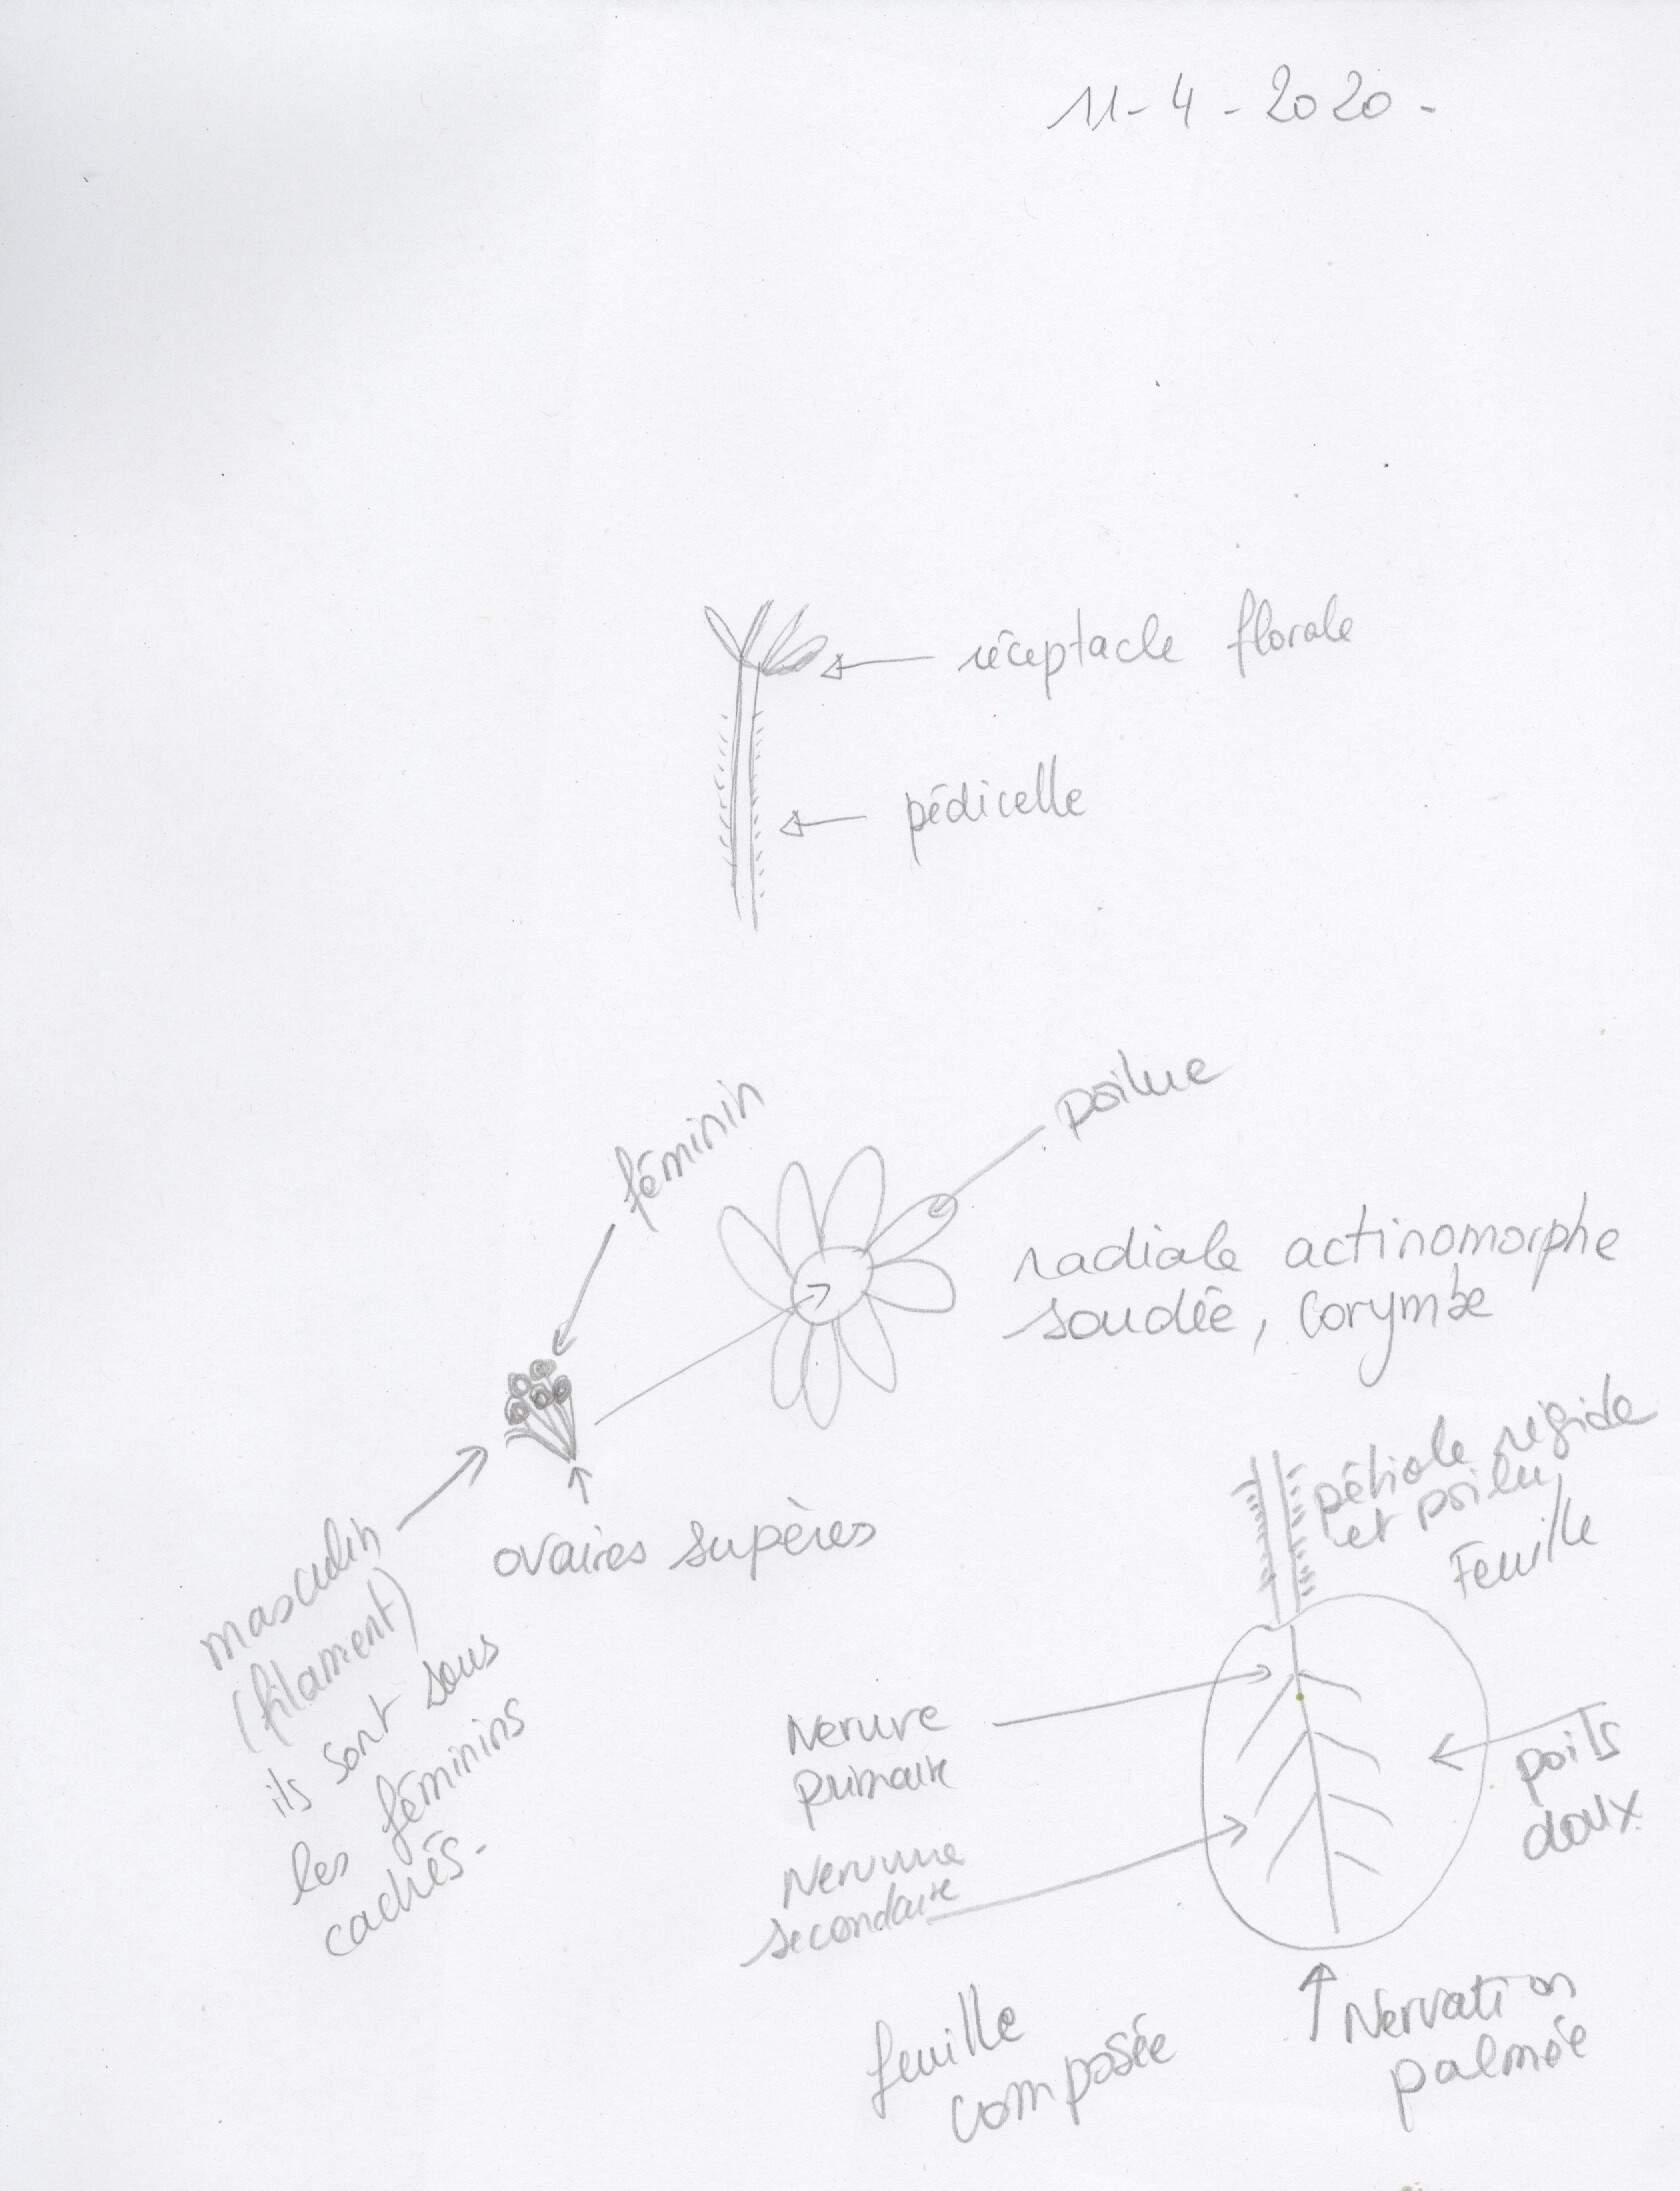 11-4-2020-
réceptacle florale
pédicelle
féminin
poilue
radiale actinomorphe
soudée, corymbe
masculin
(filament)
ils sont sous
les féminins
cachés-
ovaires supères
pétiole rigide
et poilu
Feuille
Nervure
primaire
poils
doux
Nervure
secondaire
feuille
composée
Nervation
palmée